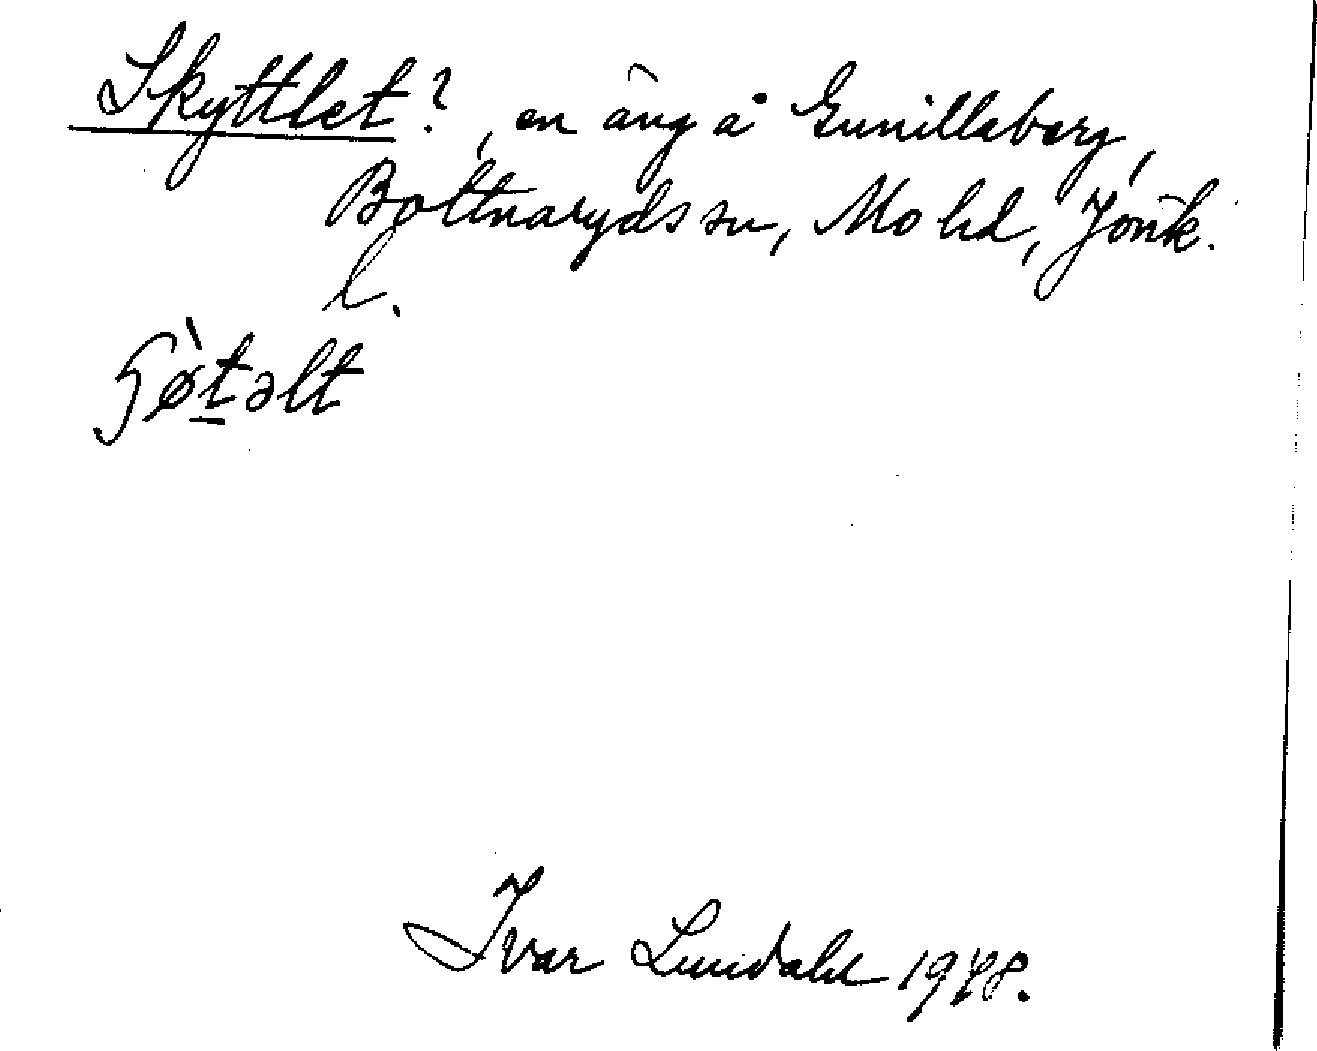 Skyttlet?, en äng å Gunillaberg,
Bottnaryds sn, Mo hd, Jönk.
l.
ʃø̀təlt
Ivar Lundahl 1948.